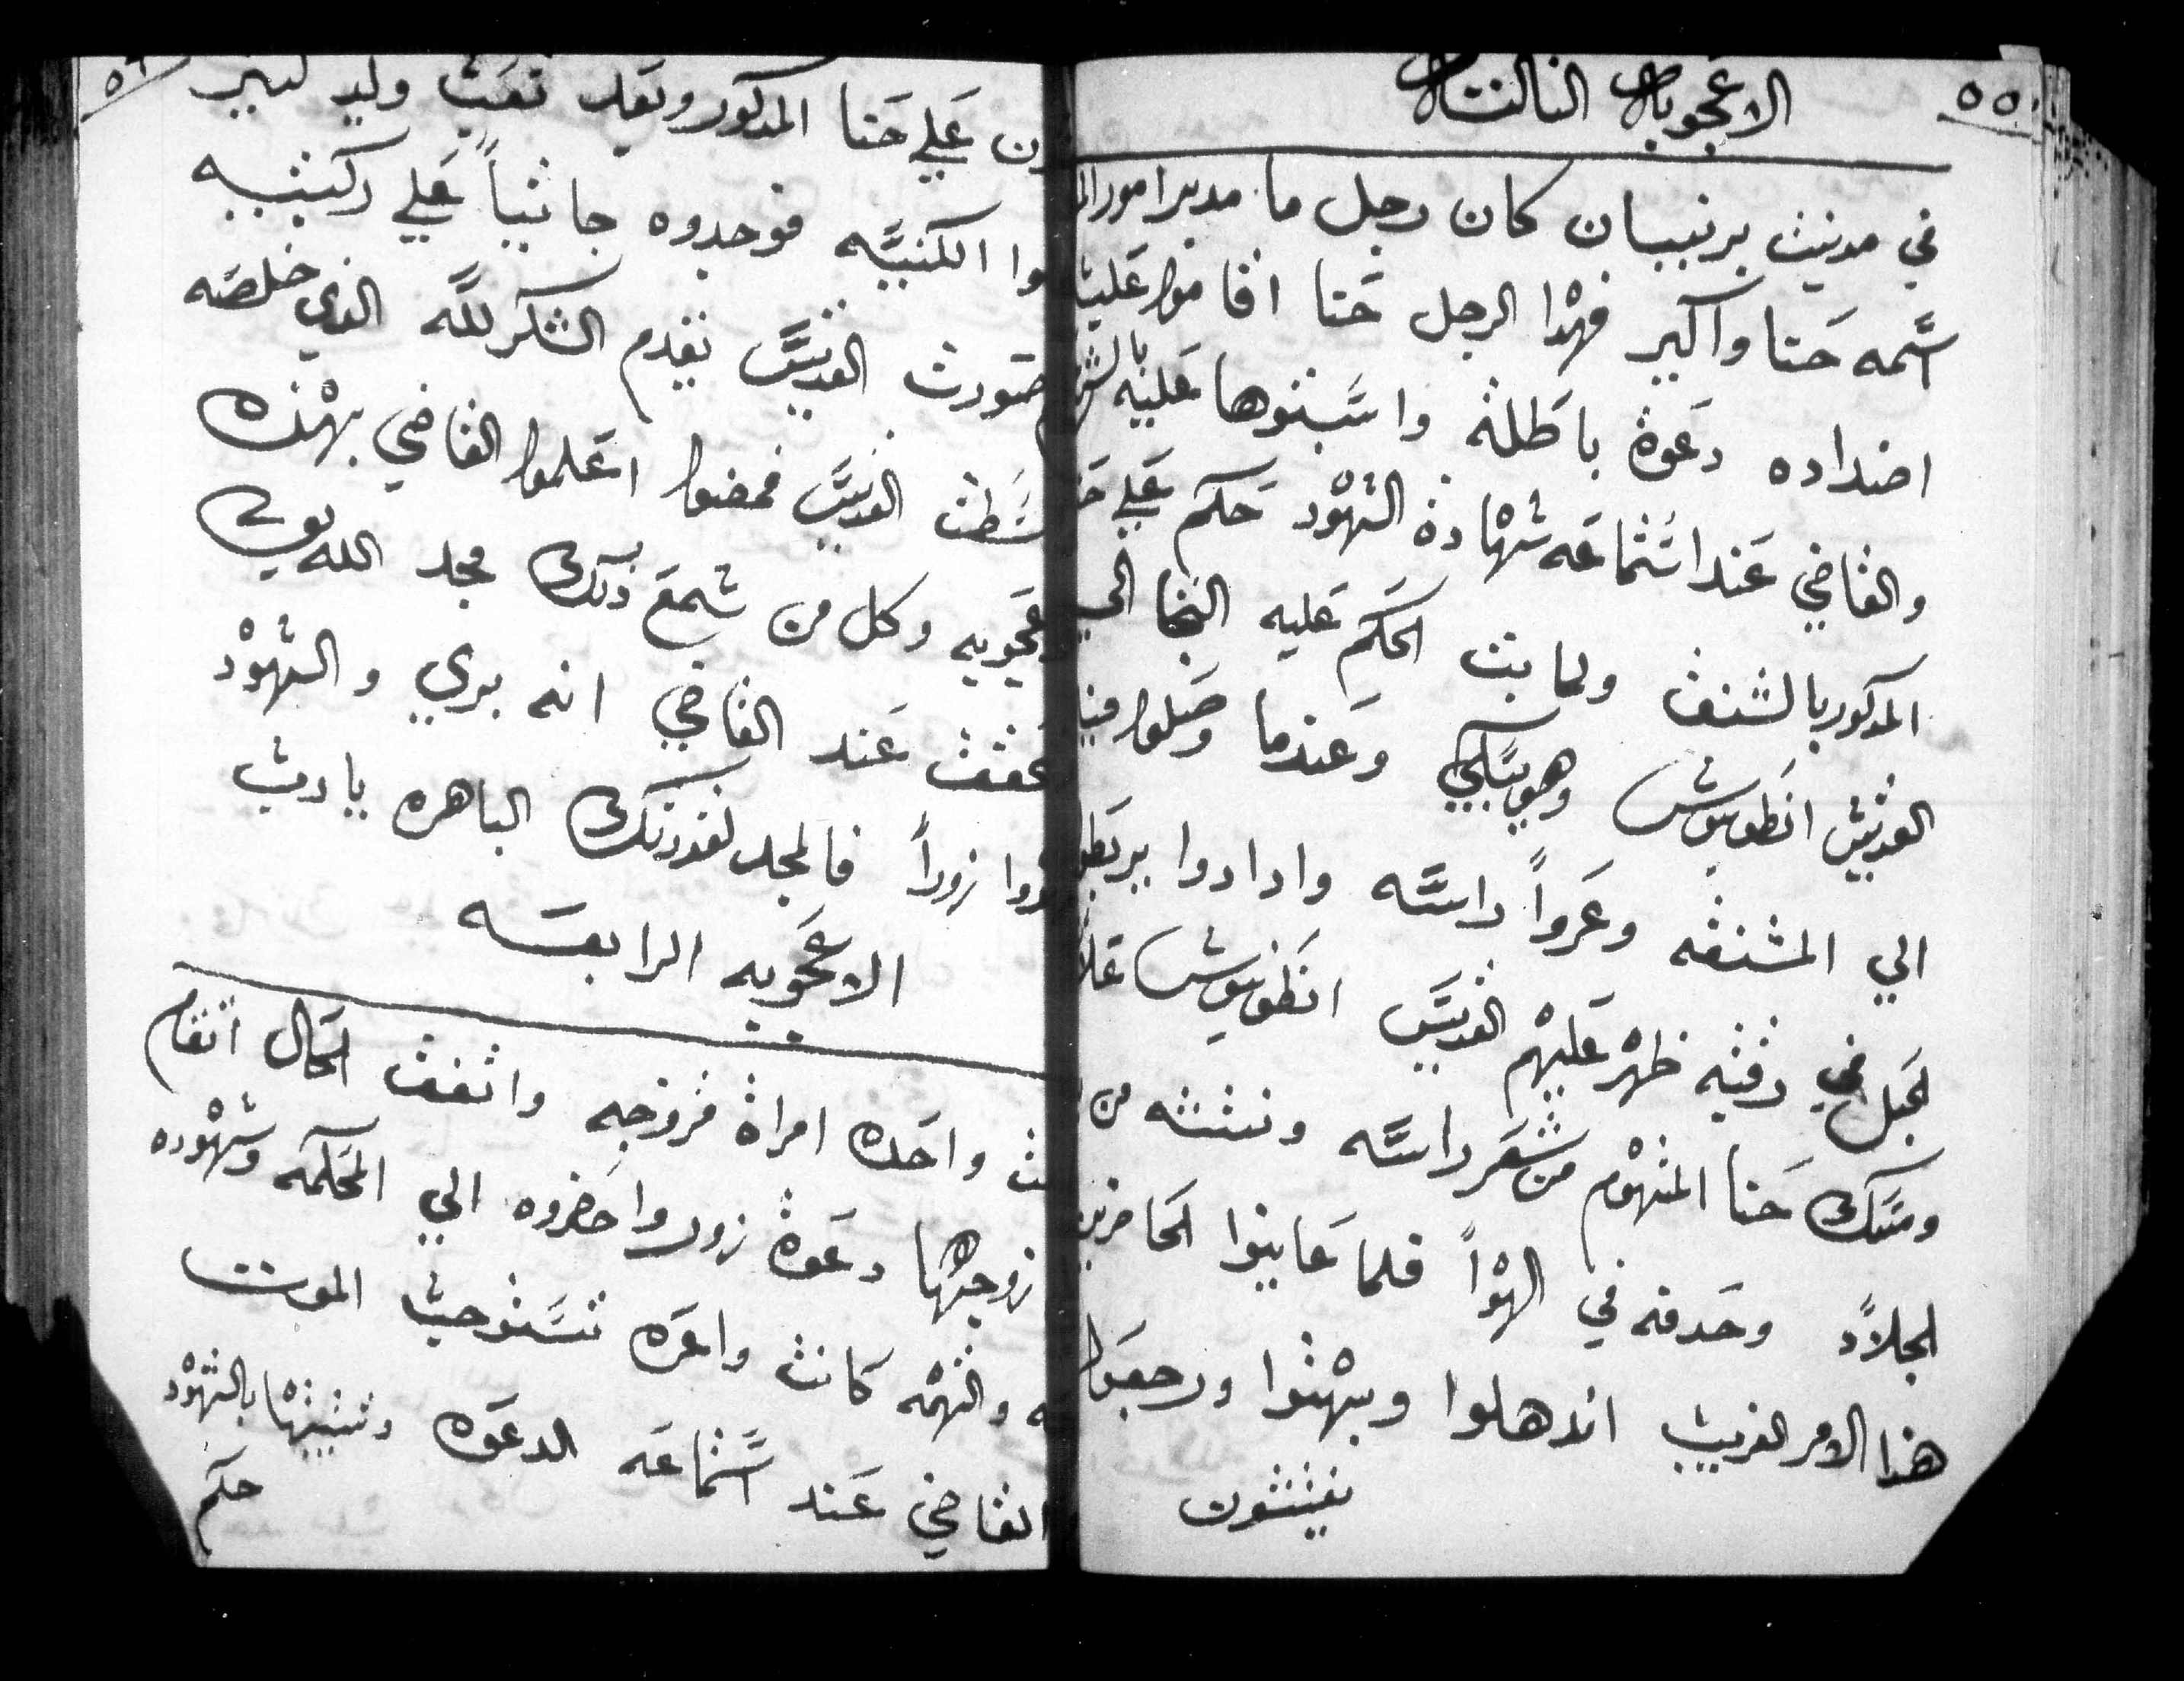 ٥٥
الاعجوبه الثالثه
في مدينة بربنيان كان رجل ما مدبر امور
اسمه حنا واكير فهذا الرجل حنا اقاموا عليه
اضداده دعوة باطلة واسبتوها عليه
والقاضي عند استماعه شهادة الشهود حكم علي
المدكور بالشنق ولما بت الحكم عليه التجا الي
القديس انطونيوس وهو يبكي وعندما وصلوا فيه
الي المشنقه وعروا راسه وارادوا يربطوا
لحبل في رقبته ظهر عليهم القديس انطونيوس
ومسك حنا المتهوم من شعر راسه ونتشه من
لجلاد وحدفه في الهوا فلما عاينوا الحاضرين
هذا الامر الغريب اندهلوا وبهتوا ورجعوا
يفتشون
٥٦
ون علي حنا المدكور وبعد تعب وليد كتير
وا الكنيسه فوجدوه جاثيا علي ركبتيه
صورت القديس يقدم الشكر لله الذي خلصه
القديس فمضوا اعلموا القاضي بهذه
عجوبه وكل من سمع ذلك مجد الله
عند القاضي انه بري والشهود
دوا زورا فالمجد لقدرتك الباهره يارب
الاعجوبه الرابعه
واحده امراة مزوجه واتفق الحال
زوجها دعوة زور واحضروه الي المحكمه وشهوده
ه والتهمه كانت واعره تستوجب الموت
القاضي عند استماعه الدعوه وتتبيتها بالشهود
حكم